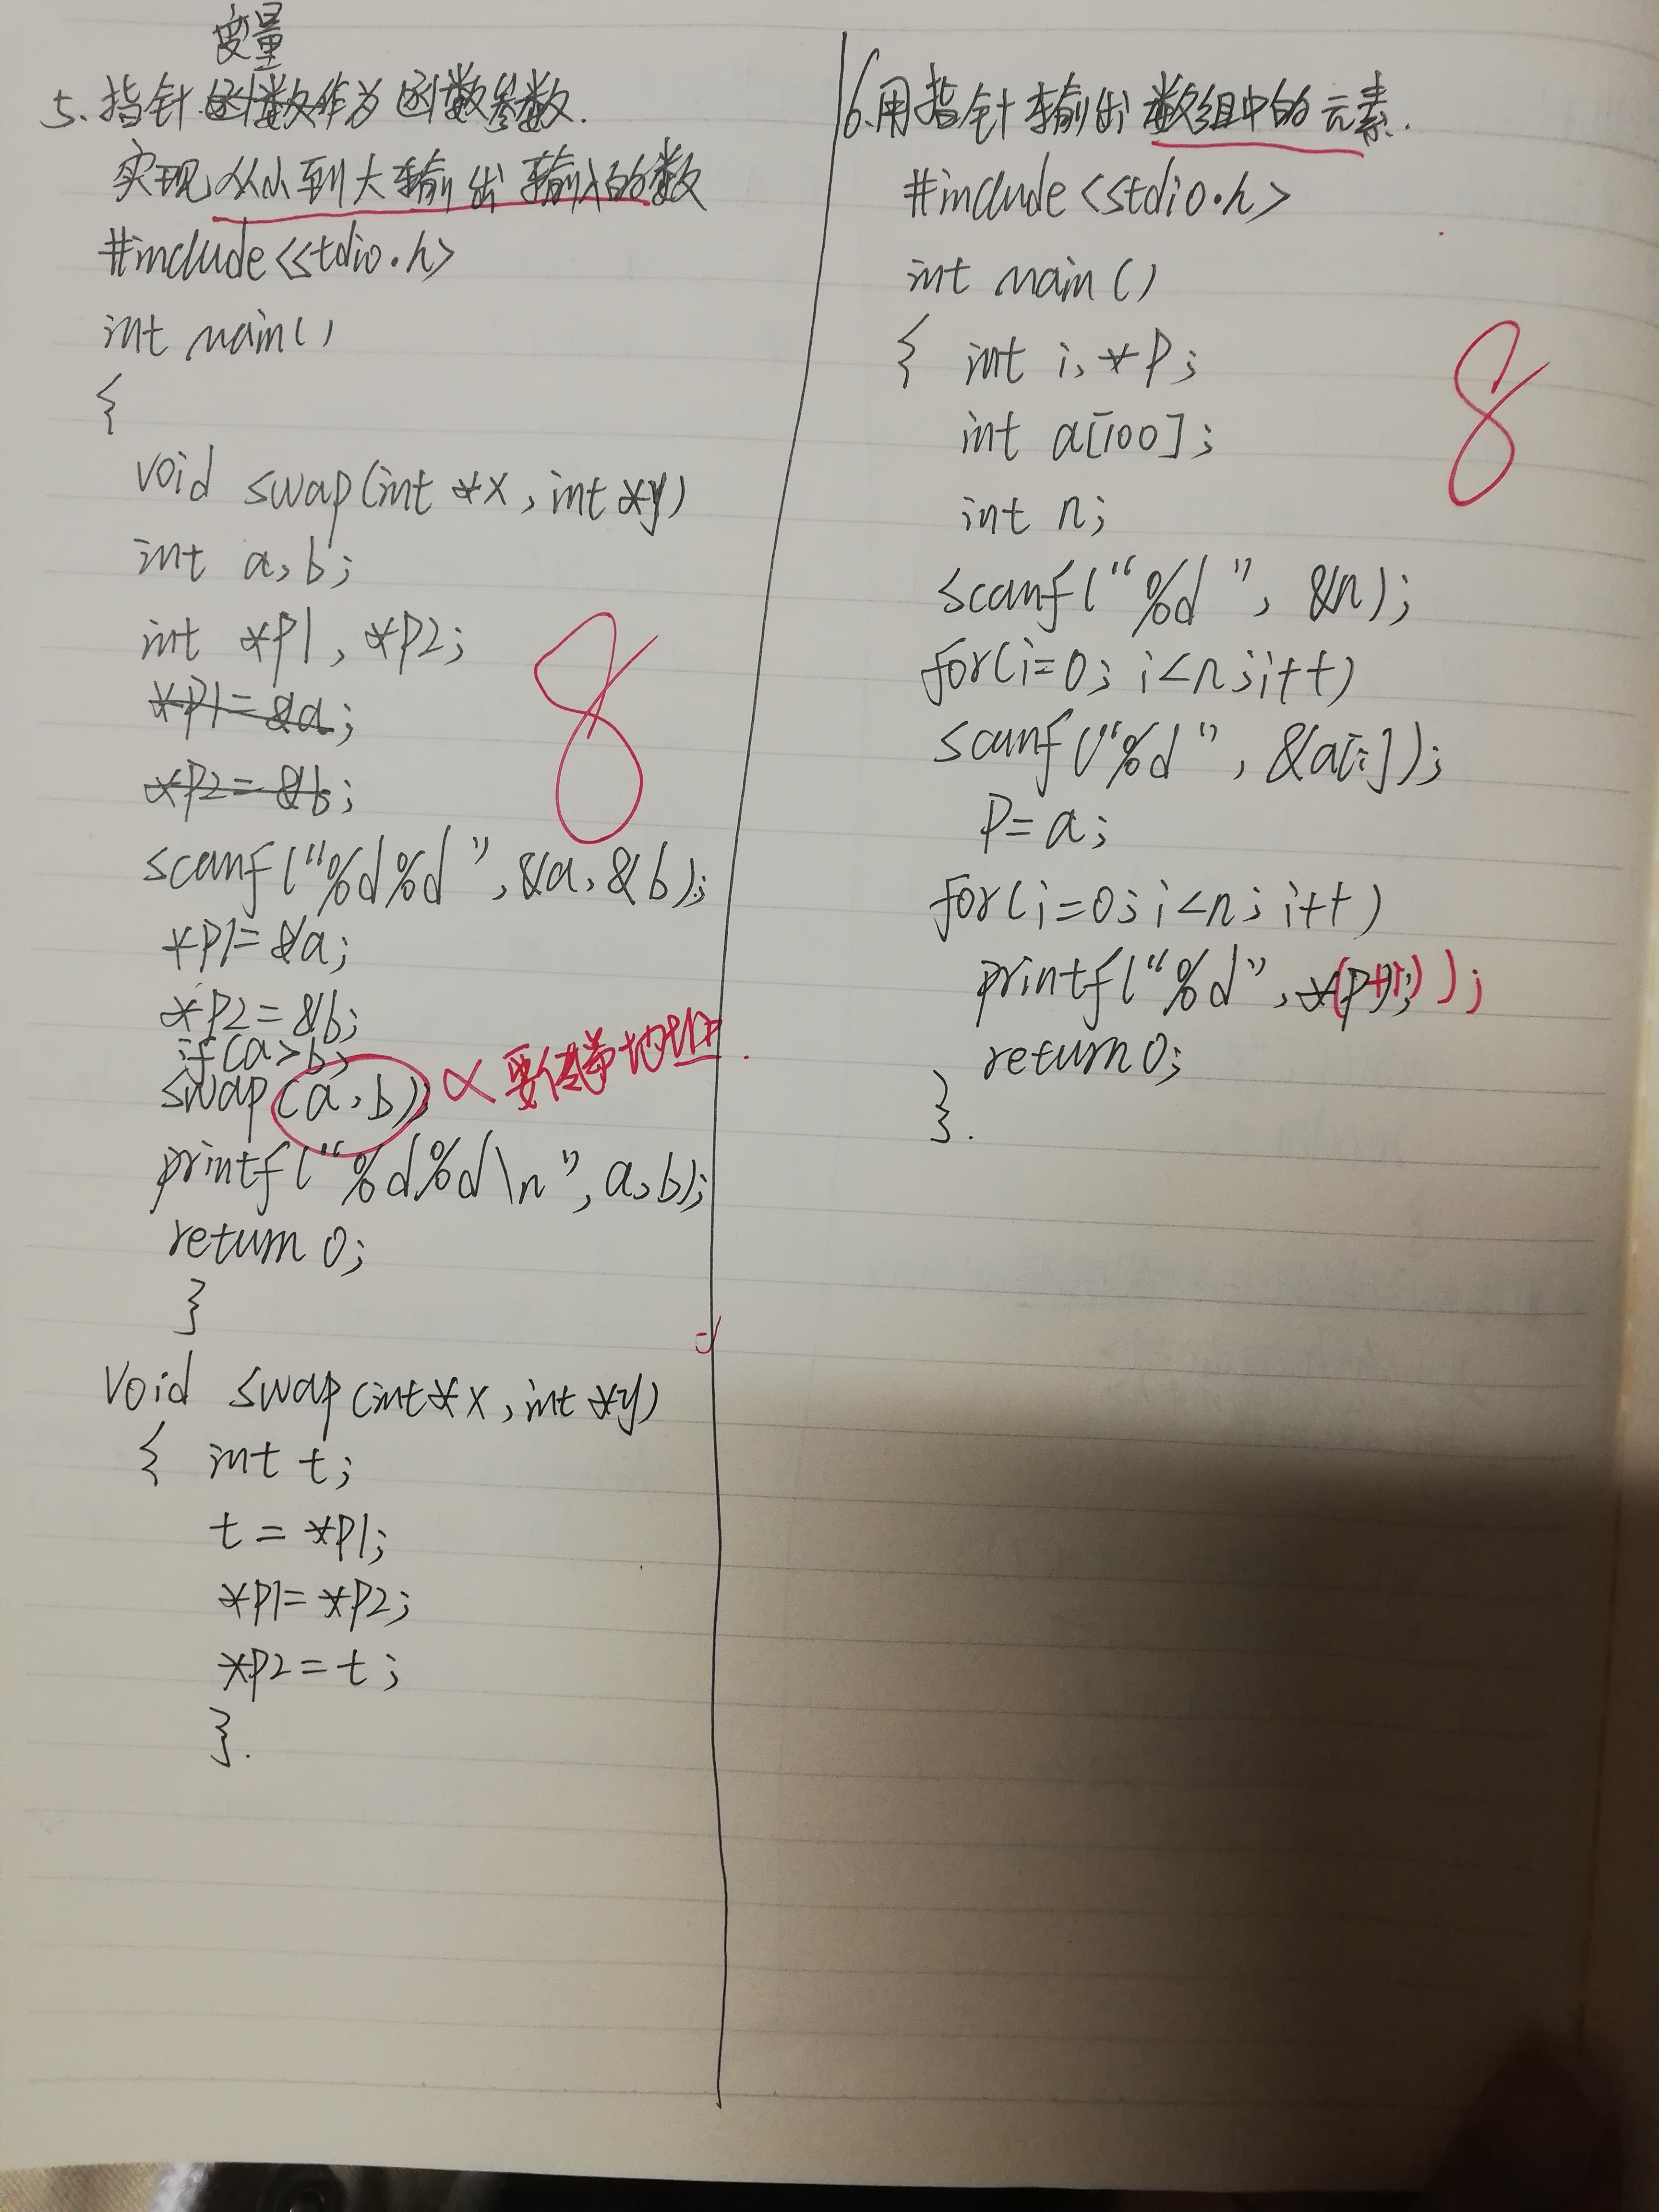 变量
5.指针函数作为函数参数.
实现从小到大输出输入的数
#include<stdio.h>
int main()
{
void swap(int *x,int *y)
int a,b;
int *p1,*p2;
*p1=&a;
*p2=&b;
scanf("%d%d",&a,&b);
*p1=&a;
*p2=&b;
if(a>b)
swap(a,b);
要传等地址.
printf("%d%d\n",a,b);
return 0;
}
void swap(int*x,int *y)
{ int t;
t=*p1;
*p1=*p2;
*p2=t;
}.
8
6.用指针输出数组中的元素.
#include<stdio.h>
int main()
{ int i,*p;
int a[100];
int n;
scanf("%d",&n);
for(i=0;i<n;i++)
scanf("%d",&a[i]);
p=a;
for(i=0;i<n;i++)
printf("%d",*(p+i));
return 0;
}.
8